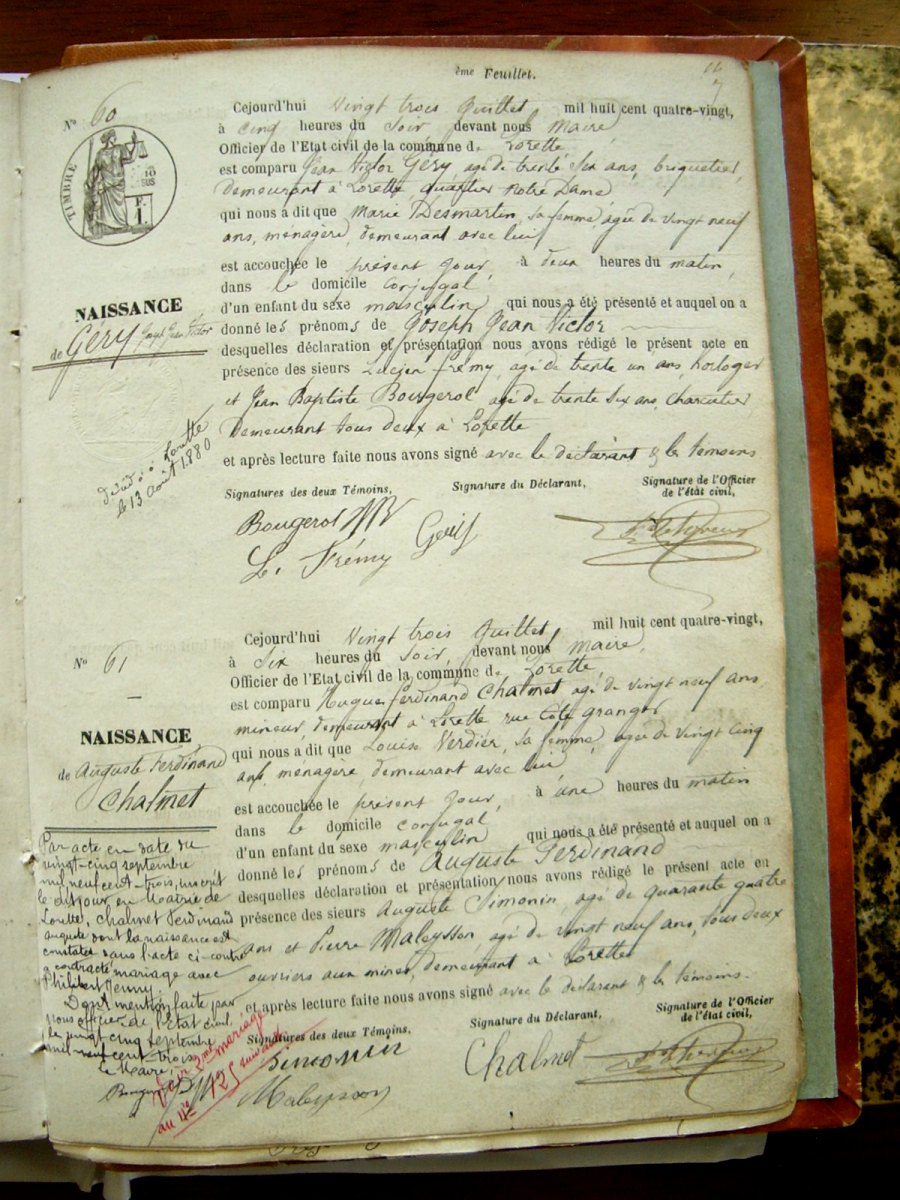 ème Feuillet.
7
N° 60
TIMBRE
10
NAISSANCE
de Géry Joseph Jean Victor
décédé à Lorette
le 13 août 1880
Cejourd'hui Vingt trois Juillet mil huit cent quatre-vingt,
à cinq heures du Soir, devant nous Maire
Officier de l'Etat civil de la commune de Lorette
est comparu Jean Victor Géry agé de trente Six ans, briquetier
demeurant à Lorette quartier Notre Dame
qui nous a dit que Marie Desmartin, sa femme, agée de vingt neuf
ans, ménagère, demeurant avec lui
est accouchée le présent Jour, à deux heures du matin,
dans le domicile conjugal
d'un enfant du sexe masculin qui nous a été présenté et auquel on a
donné les prénoms de Joseph Jean Victor
desquelles déclaration et présentation nous avons rédigé le présent acte en
présence des sieurs Lucien frémy, agé de trente un ans, horloger
et Jean Baptiste Bougerol agé de trente Six ans, Charcutier
Demeurant tous deux à Lorette
et après lecture faite nous avons signé avec le déclarant & les témoins
Signatures des deux Témoins, Signature du Déclarant, Signature de l'Officier
de l'état civil,
Bougerol
L. Frémy Géry
N° 61
NAISSANCE
de Auguste Ferdinand
Chalmet
Cejourd'hui Vingt trois Juillet mil huit cent quatre-vingt,
à Six heures du Soir, devant nous Maire,
Officier de l'Etat civil de la commune de Lorette
est comparu Hugue Ferdinand Chalmet agé de vingt neuf ans,
mineur, demeurant à Lorette rue Côte granger
qui nous a dit que Louise Verdier, sa femme, agée de vingt cinq
ans, ménagère, demeurant avec lui
est accouchée le présent Jour, à une heures du matin
dans le domicile conjugal
d'un enfant du sexe masculin qui nous a été présenté et auquel on a
donné les prénoms de Auguste Ferdinand
desquelles déclaration et présentation nous avons rédigé le présent acte en
présence des sieurs Auguste Simonin, agé de quarante quatre
ans et Pierre Maleysson, agé de vingt neuf ans, tous deux
ouvriers aux mines, demeurant à Lorette
et après lecture faite nous avons signé avec le déclarant & les témoins.
Signatures des deux Témoins, Signature du Déclarant, Signature de l'Officier
de l'état civil,
Simonin
Maleysson
Chalmet
Par acte en date du
vingt-cinq septembre
mil neuf cent trois, inscrit
le dit jour en Mairie de
Lorette, Chalmet Ferdinand
Auguste dont la naissance est
constatée dans l'acte ci-contre
a contracté mariage avec
Philibert Jenny.
Dont mention faite par
nous officier de l'Etat civil
le vingt cinq septembre
mil neuf cent trois
Le Maire,
Voir 2me mariage
au N° 125 suivant